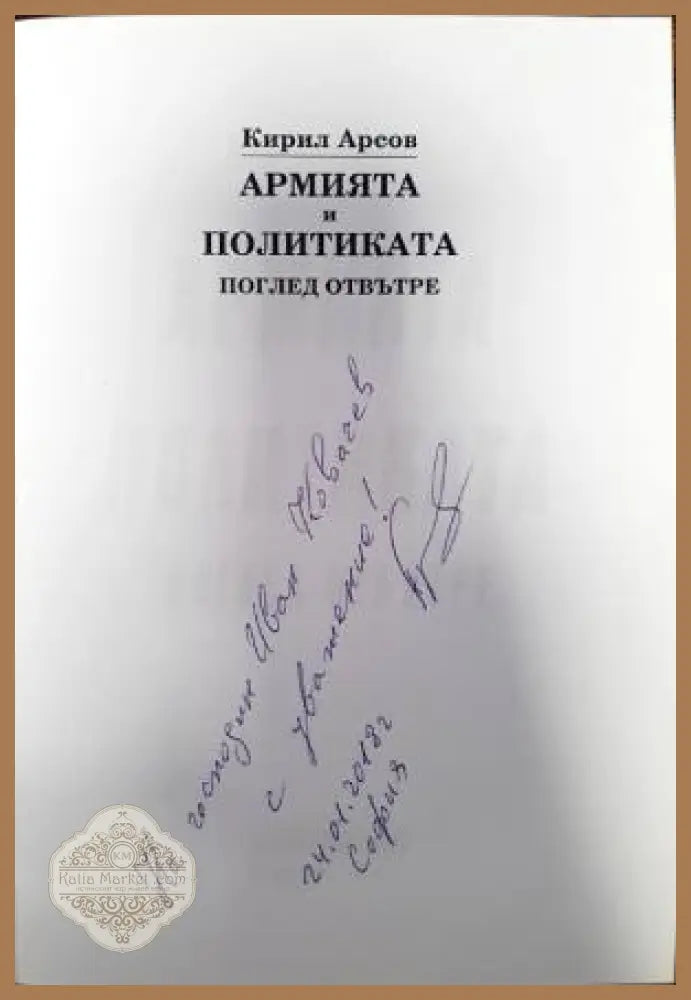 Кирил Арсов
АРМИЯТА
и
ПОЛИТИКАТА
ПОГЛЕД ОТВЪТРЕ
господин Иван Ковачев
с уважение!
24.01.2018г
София
KM
Kalia Market .com